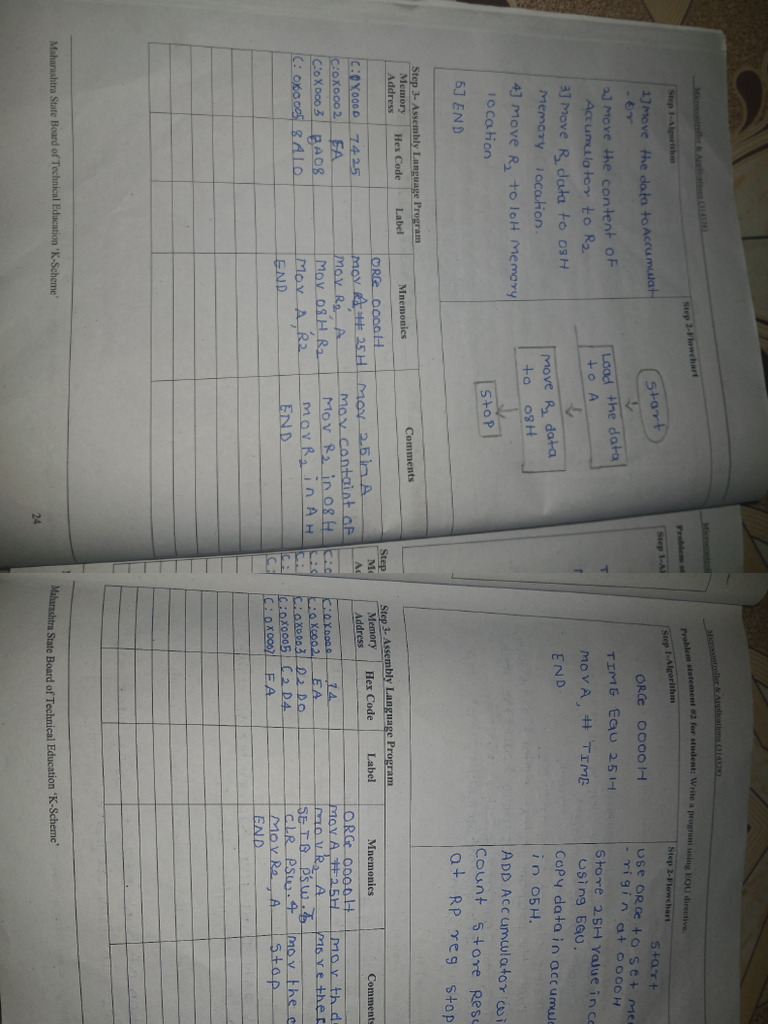 Microcontroller & Applications (314328)
Step 1-Algorithm
1] move the data to Accumulat
- or
2] move the content OF
Accumulator to R2
3] Move R2 data to 08H
memory location.
4] Move R2 to 10H memory
location
5] END
Step 2-Flowchart
Start
Load the data
to A
Move R2 data
to 08H
Stop
Step 3- Assembly Language Program
Memory Address Hex Code Label Mnemonics Comments
ORG 0000H
C:0X0000 7425 MOV A, # 25H MOV 25 in A
C:0X0002 FA MOV R2, A MOV containt OF
C:0X0003 8A08 MOV 08H, R2 MOV R2 in 08H
C:0X0005 8A10 MOV A, R2 MOV R2 in AH
END END
Maharashtra State Board of Technical Education 'K-Scheme'
24
Microcontroller & Applications (314328)
Problem statement #2 for student: Write a program using EQU directive.
Step 1-Algorithm
ORG 0000H
TIME EQU 25H
MOV A, # TIME
END
Step 2-Flowchart
Start
use ORG to set me
- rigin at 0000H
Store 25H value in co
using EQU.
Copy data in accumu
in 05H.
ADD Accumulator wi
Count store resu
at RP reg stop
Step 3- Assembly Language Program
Memory Address Hex Code Label Mnemonics Comments
ORG 0000H
C:0X0000 74 MOV A #25H mov th da
C:0X0002 FA MOV R2, A move the
C:0X0003 D2D0 SETB PSW.
C:0X0005 C2D4 CLR PSW.4 mov the c
C:0X0007 FA MOV R2, A Stop
END
Maharashtra State Board of Technical Education 'K-Scheme'